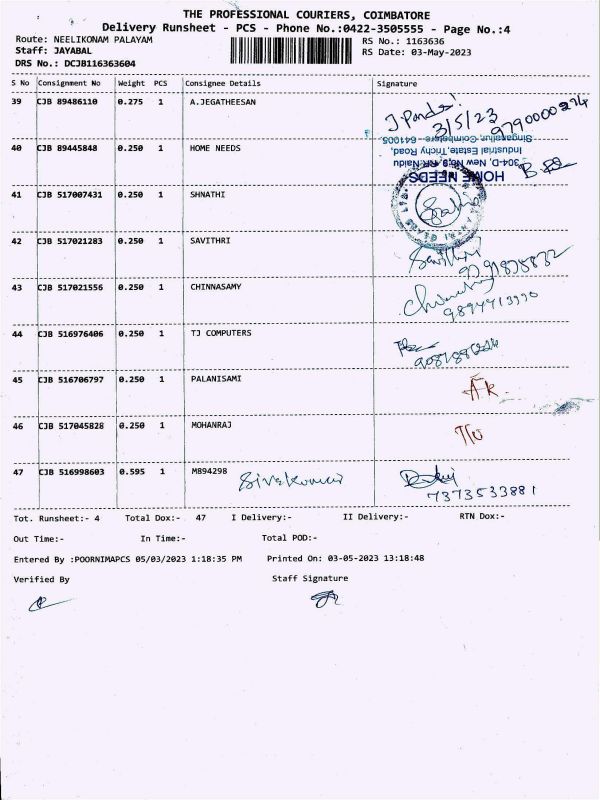 THE PROFESSIONAL COURIERS, COIMBATORE
Delivery Runsheet - PCS - Phone No.:0422-3505555 - Page No.:4
Route: NEELIKONAM PALAYAM
RS No.: 1163636
Staff: JAYABAL
RS Date: 03-May-2023
DRS No.: DCJB116363604
S No Consignment No Weight PCS Consignee Details Signature
39 CJB 89486110 0.275 1 A.JEGATHEESAN
3/5/23
9790000274
40 CJB 89445848 0.250 1 HOME NEEDS
HOME NEEDS
304-D, New No.9, RR Naidu
Industrial Estate, Trichy Road,
Singanallur, Coimbatore - 641005
41 CJB 517007431 0.250 1 SHNATHI
42 CJB 517021283 0.250 1 SAVITHRI
Savithri
43 CJB 517021556 0.250 1 CHINNASAMY
44 CJB 516976406 0.250 1 TJ COMPUTERS
45 CJB 516706797 0.250 1 PALANISAMI
46 CJB 517045828 0.250 1 MOHANRAJ
47 CJB 516998603 0.595 1 M894298
Sivakumar
7373533881
Tot. Runsheet:- 4 Total Dox:- 47 I Delivery:- II Delivery:- RTN Dox:-
Out Time:- In Time:- Total POD:-
Entered By :POORNIMAPCS 05/03/2023 1:18:35 PM Printed On: 03-05-2023 13:18:48
Verified By Staff Signature